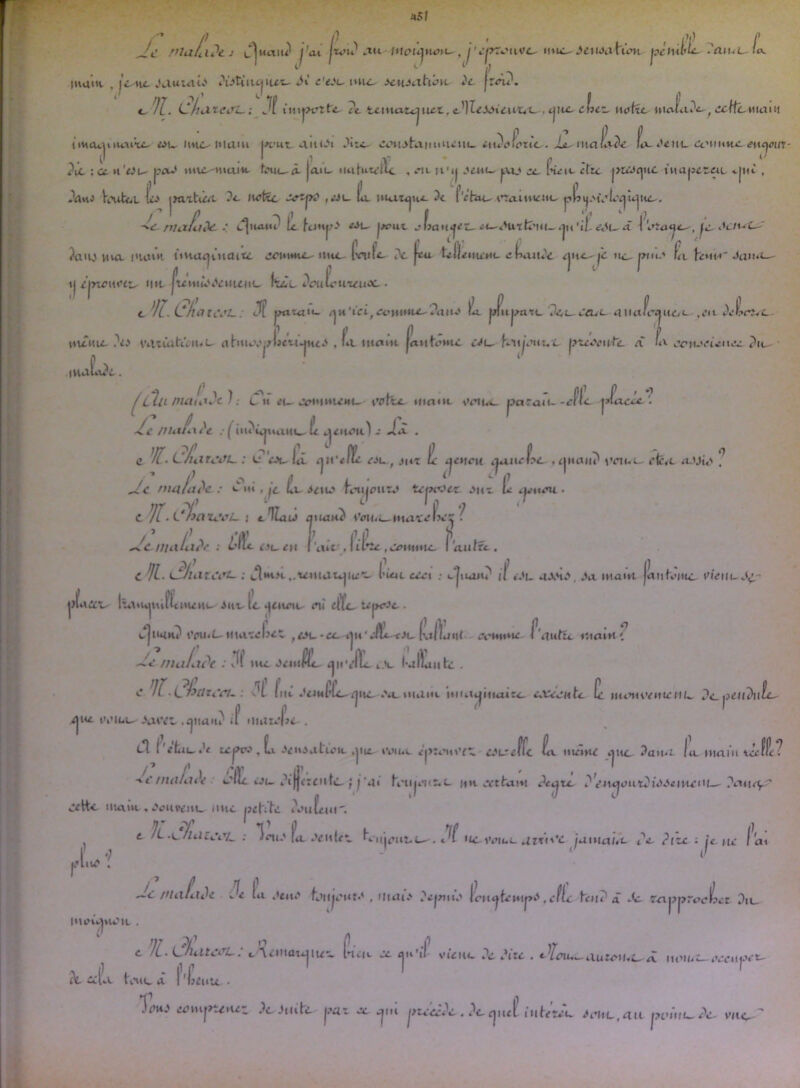 251
Le malade : Quand j'ai froid au moignon, j'éprouve une sensation pénible dans la
main, je ne saurais distinguer si c'est une sensation de froid.
M. Charcot : Il importe de remarquer, Messieurs, que chez notre malade, cette main
imaginaire est une main pour ainsi dire constamment endolorie. Le malade la sent comme engour-
die ; ce n'est pas une main tout à fait naturelle, on n'y sent pas ce bien être presque inaperçu qui,
dans toutes les parties de notre corps, est la marque de l'état vraiment physiologique.
Le malade : Quand le temps est pour changer et surtout qu'il est à l'orage, je sens
dans ma main imaginaire comme une boule de feu tellement chaude que je ne puis la tenir dans
y éprouver un frémissement très douloureux.
M. Charcot : Il paraît qu'ici, comme dans la plupart des cas analogues, en dehors
même des variations atmosphériques, la main fantôme est toujours présente à la conscience du
malade.
(Au malade) : Où et comment votre main vous paraît-elle placée ?
Le malade : (indiquant le genou) : Là.
M. Charcot : C'est là qu'elle est, sur le genou gauche, quand vous êtes assis ?
Le malade : Oui, je la sens toujours reposer sur le genou.
M. Charcot : Mais quand vous marchez ?
Le malade : Elle est en l'air, libre, comme l'autre.
M. Charcot : Ainsi, remarquez bien ceci : quand il est assis, sa main fantôme vient se
placer tranquillement sur le genou où elle repose.
Quand vous marchez, est-ce qu'elle est ballant comme l'autre main ?
Le malade : Il me semble qu'elle est ballante.
M. Charcot : Il lui semble que sa main imaginaire exécute le mouvement de pendule
que vous savez, quand il marche.
A l'état de repos, la sensation que vous éprouvez est-elle la même que dans la main réelle ?
Le malade : Elle est différente ; j'ai toujours un certain degré d'engourdissement dans
cette main, souvent une petite douleur.
M. Charcot : Vous la sentez toujours. Il ne vous arrive jamais de dire : je ne l'ai
plus ?
Le malade : Je la sens toujours, mais depuis longtemps, elle tend à se rapprocher du
moignon.
M. Charcot : Remarquez bien ce qu'il vient de dire. Nous aurons à nous occuper
de cela tout à l'heure.
Vous comprenez de suite par ce qui précède, de quel intérêt sont, au point de vue